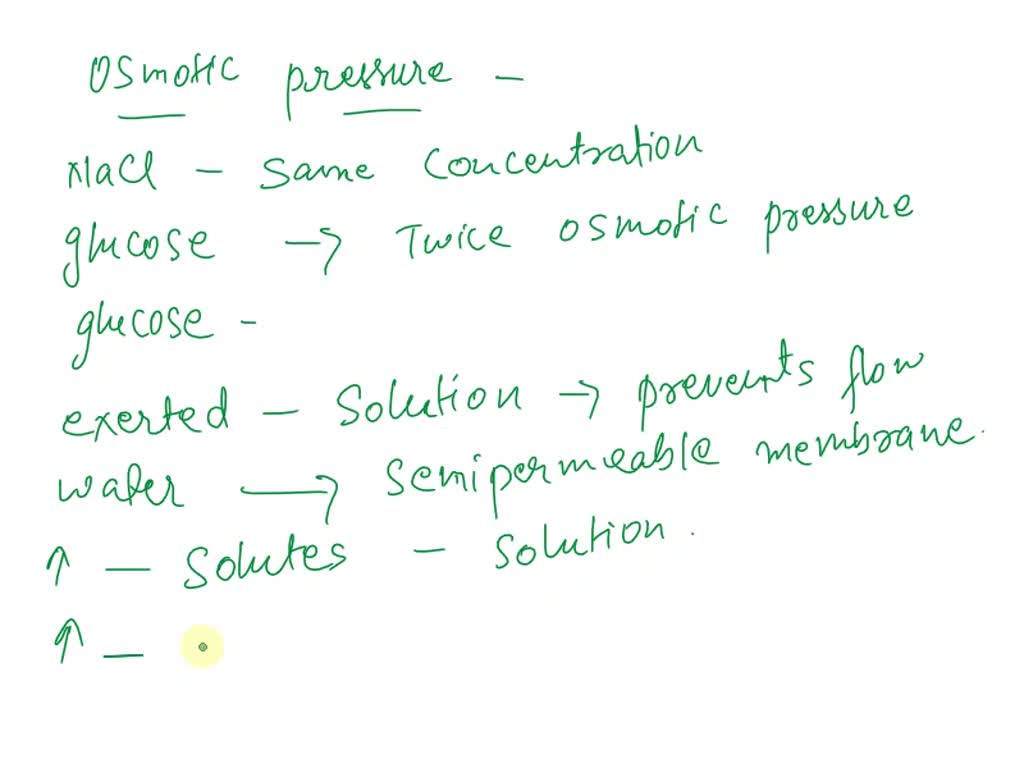 Osmotic pressure -
NaCl - Same Concentration
glucose → Twice osmotic pressure
glucose -
exerted - Solution → prevents flow
water → Semipermeable membrane.
↑ - Solutes - Solution.
↑ -